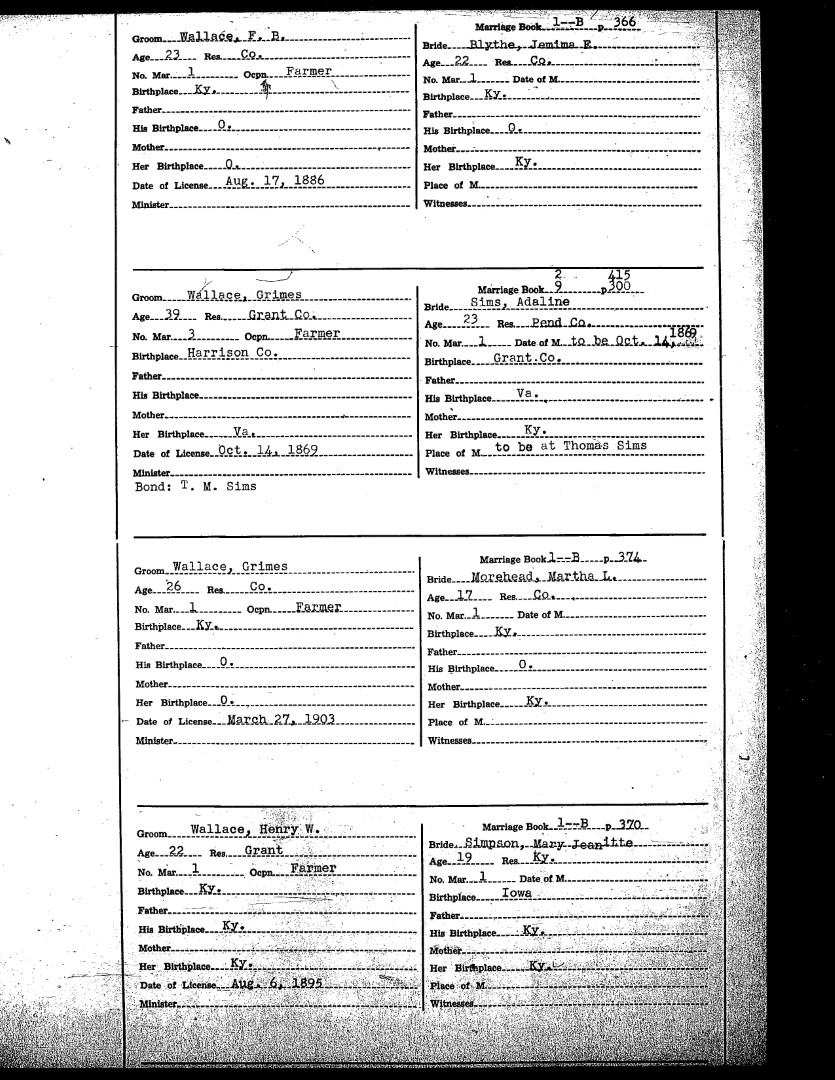 Groom Wallace, F. B.
Age 23 Res. Co.
No. Mar. 1 Ocpn. Farmer
Birthplace Ky.
Father
His Birthplace O.
Mother
Her Birthplace O.
Date of License Aug. 17, 1886
Minister
Marriage Book 1--B p. 366
Bride Blythe, Jemima E.
Age 22 Res. Co.
No. Mar. 1 Date of M.
Birthplace Ky.
Father
His Birthplace O.
Mother
Her Birthplace Ky.
Place of M.
Witnesses
Groom Wallace, Grimes
Age 39 Res. Grant Co.
No. Mar. 3 Ocpn. Farmer
Birthplace Harrison Co.
Father
His Birthplace
Mother
Her Birthplace Va.
Date of License Oct. 14, 1869
Minister
Bond: T. M. Sims
2 415
Marriage Book 9 p. 300
Bride Sims, Adaline
Age 23 Res. Pend Co.
1869
No. Mar. 1 Date of M. to be Oct. 14,
Birthplace Grant Co.
Father
His Birthplace Va.
Mother
Her Birthplace Ky.
Place of M. to be at Thomas Sims
Witnesses
Groom Wallace, Grimes
Age 26 Res. Co.
No. Mar. 1 Ocpn. Farmer
Birthplace Ky.
Father
His Birthplace O.
Mother
Her Birthplace O.
Date of License March 27, 1903
Minister
Marriage Book 1--B p. 374
Bride Morehead, Martha L.
Age 17 Res. Co.
No. Mar. 1 Date of M.
Birthplace Ky.
Father
His Birthplace O.
Mother
Her Birthplace Ky.
Place of M.
Witnesses
Groom Wallace, Henry W.
Age 22 Res. Grant
No. Mar. 1 Ocpn. Farmer
Birthplace Ky.
Father
His Birthplace Ky.
Mother
Her Birthplace Ky.
Date of License Aug. 6, 1895
Minister
Marriage Book 1--B p. 370
Bride Simpson, Mary Jeanitte
Age 19 Res. Ky.
No. Mar. 1 Date of M.
Birthplace Iowa
Father
His Birthplace Ky.
Mother
Her Birthplace Ky.
Place of M.
Witnesses